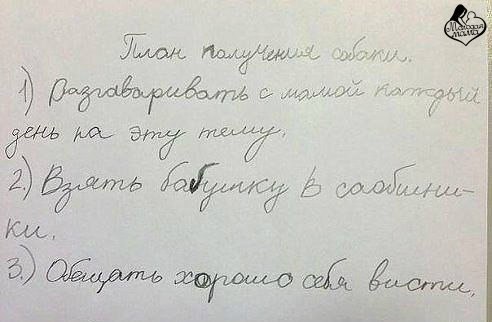 Молодая мама
План получения собаки.
1) Разгаваривать с мамой каждый
день на эту тему.
2.) Взять бабушку в саобшни-
ки.
3.) Обещать хорошо себя висти.